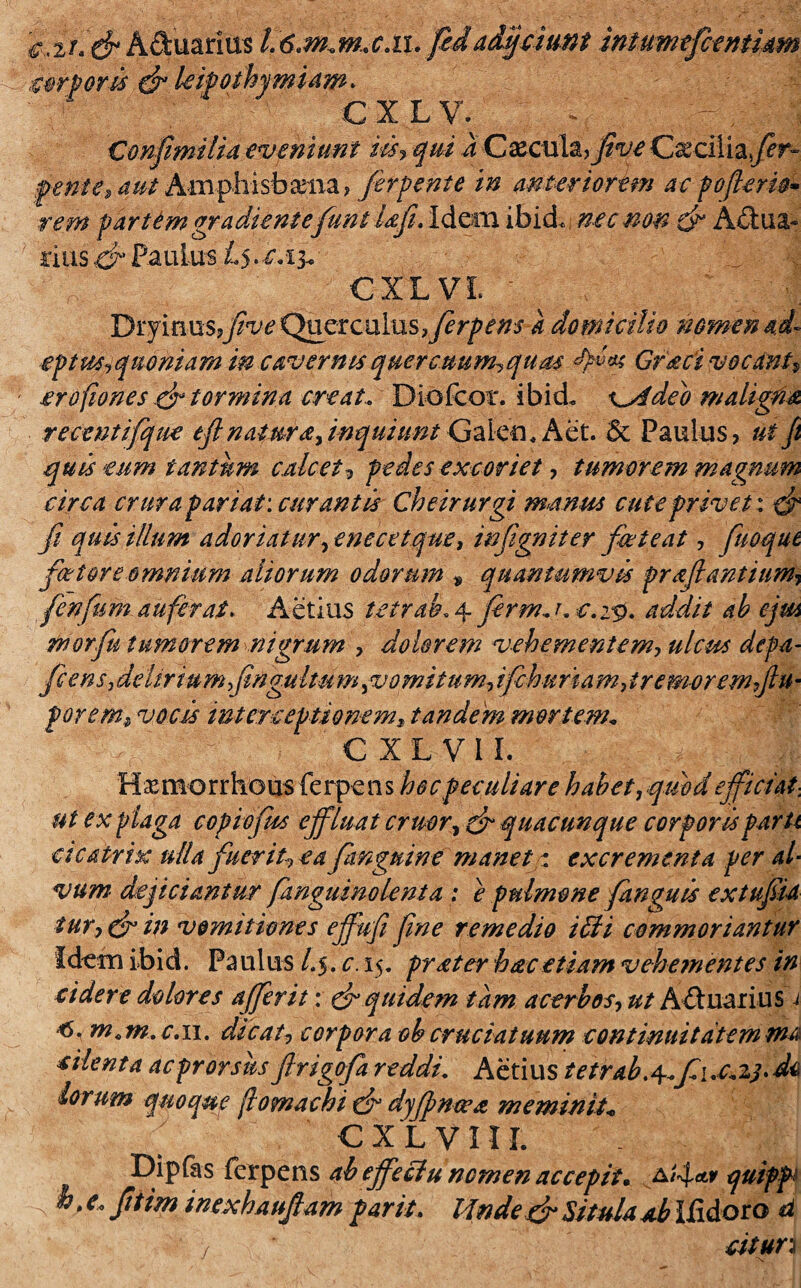 c.21. & Actuarius l.6.m.m.c.11. sed adijciunt intumescentiam
corporis & leipothymiam.
CXLV.
Consimilia eveniunt iis, qui à Cæcula, sive Cæcilia, ser-
pente, aut Amphisbæna, serpente in anteriorem ac posterio-
rem partem gradiente sunt læsi. Idem ibid. nec non & Actua-
rius & Paulus l.5.c.13.
CXLVI.
Dryinus, sive Querculus, serpens à domicilio nomen ad-
eptus, quoniam in cavernis quercuum, quas δρύας Græci vocant,
erosiones & tormina creat. Dioscor. ibid. Adeò malignæ
recentisque est naturæ, inquiunt Galen. Aët. & Paulus, ut si
quis eum tantùm calcet, pedes excoriet, tumorem magnum
circa crura pariat: curantis Cheirurgi manus cute privet: &
si quis illum adoriatur, enecetque, insigniter fœteat, suoque
fœtore omnium aliorum odorum, quantumvis præstantium,
sensum auferat. Aëtius tetrab. 4 serm. 1. c. 29. addit ab ejus
morsu tumorem nigrum, dolorem vehementem, ulcus depa-
scens, delirium, singultum, vomitum, ischuriam, tremorem, stu-
porem, vocis interceptionem, tandem mortem.
CXLVII.
Hæmorrhous serpens hoc peculiare habet, quòd efficiat,
ut ex plaga copiosus effluat cruor, & quacunque corporis parte
cicatrix ulla fuerit, ea sanguine manet: excrementa per al-
vum dejiciantur sanguinolenta: è pulmone sanguis extussia
tur, & in vomitiones effusi sine remedio icti commoriantur
Idem ibid. Paulus l.5. c. 15. præter hæc etiam vehementes in
cidere dolores asserit: & quidem tàm acerbos, ut Actuarius l
6. m. m. c.11. dicat, corpora ob cruciatuum continuitatem ma
cilenta ac prorsùs strigosa reddi. Aëtius tetrab.4.s.1.c.23. do
lorum quoque stomachi & dyspnœæ meminit.
CXLVIII.
Dipsas serpens ab effectu nomen accepit. Δίψαν quipp
h.e. sitim inexhaustam parit. Unde & Situla ab Isidoro d
citur: